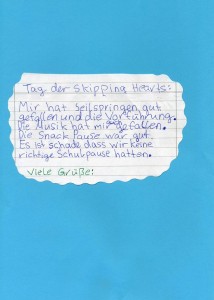 Tag der Skipping Hearts:
Mir hat Seilspringen gut
gefallen und die Vorführung.
Die Musik hat mir gefallen.
Die Snack Pause war gut.
Es ist schade dass wir keine
richtige Schulpause hatten.
Viele Grüße: